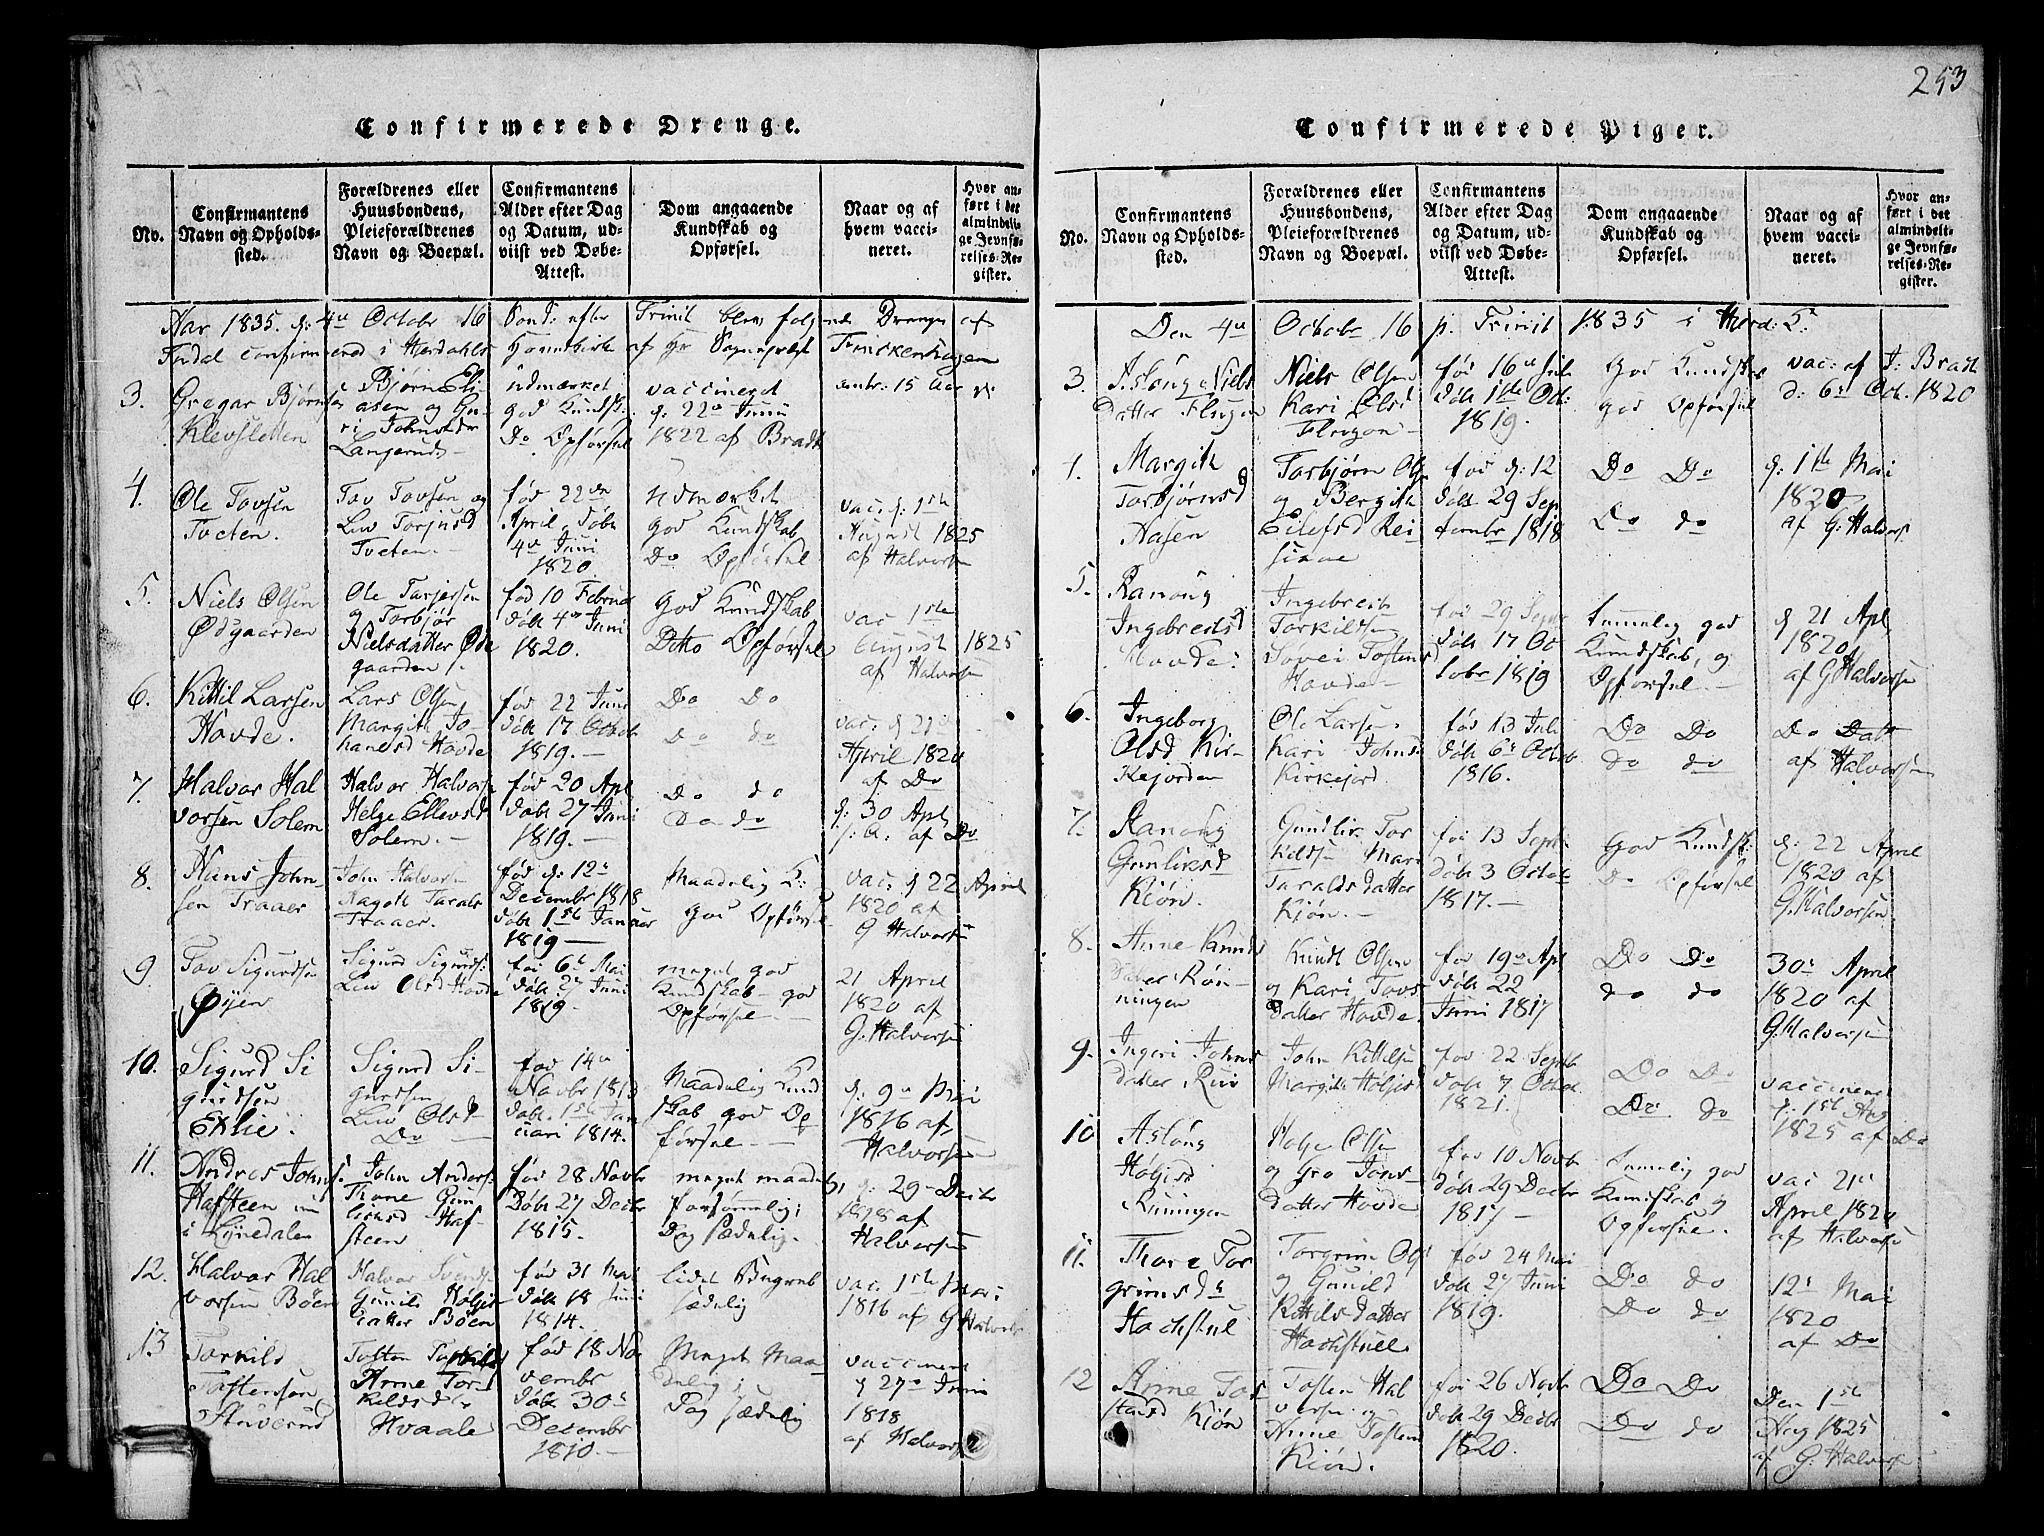 253
Confirmerede Drenge.
No.
Confirmantens Navn og Opholdssted.
Forældrenes eller Huusbondens, Pleieforældrenes Navn og Boepæl.
Confirmantens Alder efter Dag og Datum, udviist ved Døbe-Attest.
Dom angaaende Kundskab og Opførsel.
Naar og af hvem vaccineret.
Hvor anført i det almindelige Jevnførelses-Register.
Aar 1835. d: 4de Octobr 16 Sønd: efter Trinit blev følgende Drenge af
confirmered i Hjerdahls Hovedkirke af Hr Sognepræst Frickenhagen
3. Gregar Bjørns
Klevsletten
Bjørn Eli
asen og Gu
ri Johnsdr
Langerud
udmærket
god Kundsk:
Do Opførsel
vaccineret
d: 22de Junii
1822 af Bradt
4. Ole Tovsen
Tveten.
Tov Tovsen og
Liv Torjusd
Tveten.
fød 22de
April, døbt
4de Juni
1820
udmærket
god Kundskab
Do Opførsel
vac: d: 1ste
August 1825
af Halvorsen
5. Niels Olsen
Ødgaarden
Ole Tarjersen
og Torbjør
Nielsdatter Øde
gaarden
fød 10 Februa
døbt 4de Juni
1820.
God Kundskab
Ditto Opførsel
vac 1ste
August 1825
af Halvorsen
6. Kittil Larsen
Hovde.
Lars Olsen
Margith Jo
hansd Hovde
fød 22 Juni
døbt 17 Octob
1819.
Do Do
Do do
April 1820
af Do
7. Halvor Hal
vorsen Solem
Halvor Halvors
Helge Ellevsd
Solem.
fød 20 Apl
døbt 27 Juni
1819.
Do do
Do do
d: 30 Apl
s: A: af Do
8. Hans John-
sen Traaer
John Halvors
Traaer.
fød d: 12te
Decembr 1818
døbt 1ste Januar
1819
Maadelig K:
god Opførsel
vac: d 22 April
1820 af
G Halvorsen
9. Tov Sigurdsen
Øyen
Sigurd Sigurds:
Liv Olsd Hovde
fød 6te Mai
døbt 27 Juni
1819.
meget god
Kundskab god
Opførsel
21 April
1820 af
G. Halvorsen
10. Sigurd Si
gurdsen
Sigurd Si-
gurdsen
Liv Olsd
Do
fød 14de
Novbr 1813
døbt 1ste Jan
uari 1814.
Maadelig Kund
skab god Op
førsel
d: 9de Mai
1816 af
Halvorsen
11. Andres Johns
Hafsteen
John Anders:
Thone Gun
liksd Haf-
steen
fød 28 Novbr
Døbt 27 Decbr
1815.
meget maadel:
Dog sædelig.
d: 29 Decbr
af
Halvorsen
12. Halvor Hal
vorsen Bøen
Halvor Svends:
Gunild Høljes
datter Bøen
fød 31 Mai
døbt 18 Juni
1814.
lidet Begreb
sædelig
vac: 1ste Mai
1816 af G Halvors
13 Torkild
Tostensen
Tosten Torkilds
Anne Tor
kildsdr
Hvaale
fød 18 No
vembr
døbt 30te
Decembr
1810.
Meget Maa
delig;
Dog sædelig
vaccineret
d 27de Junii
1818
af Halvorsen
Confirmerede Piger.
No.
Confirmantens Navn og Opholdssted.
Forældrenes eller Huusbondens, Pleieforældrenes Navn og Boepæl.
Confirmantens Alder efter Dag og Datum, udviist ved Døbe-Attest.
Dom angaaende Kundskab og Opførsel.
Naar og af hvem vaccineret.
Hvor anført i det almindelige Jevnførelses-Register.
Den 4de Octobr 16 p. Trinit 1835 i Hjerd: K:
3. Aslaug Niels
datter Flugon
Niels Olsen
Kari Olsd
Flugon
fød 16de Juli
døbt 1ste Oct:
1819.
God Kundskab
god Opførsel
vac: af J: Bradt
d: 6te Oct. 1820
4. Margith
Torbjørnsd
Aasen
Torbjørn Ols
og Bergith
Eilefsd
fød d: 12
døbt 29 Sep
tembr 1818
Do Do
Do do
d: 1ste Mai
1820
af G: Halvors
5. Ranoug
Ingebretsd
Hovde.
Ingebreth
Torkildsen
Tostens
Hovde
fød 29 Septr
døbt 17 Oc
tobr 1819
temmelig god
Kundskab, og
Opførsel.
d 21 Apl
1820
af G Halvorsen
6. Ingeborg
Olsd Kir-
kejorden
Ole Larsen
Kari Johns
Kirkejord.
fød 13 Juli
døbt 6te Octob
1816.
Do Do
do do
Do Dato
af Halvorsen
7. Ranoug
Gunliksd
Kiøn.
Gundlik Tor
kildsen Mari
Taraldsdatter
Kiøn.
fød 13 Septr
døbt 3 Octob
1817.
God Kundsk:
Do Opførsel
d: 22 April
1820 af
G. Halvorsen
8. Anne Knuds
datter Røn-
ningen
Knudt Olsen
og Kari Tovs
datter Hovde
fød 19de Apl
døbt 22
Juni 1817
Do Do
do do
30te April
1820 af
G. Halvorsen
9. Ingeri Johns
datter Rui
John Kittelsen
Margith Høljesd
fød 22 Septb
døbt 7 Octob
1821.
Do Do
Do do
vaccineret
d: 1ste Aug
1825 af Do
10 Aslaug
Høljesd
Rønningen
Holje Olsen
og Gro Jons
datter Hovde
fød 10 Novbr
døbt 29 Decbr
1817
temmelig god
Kundskab og
Opførsel.
vac 21de
April 1820
af Halvorsen
11. Thore Tor
grimsdr
Hachstul
Torgrim Ols
og Gunild
Kittilsdatter
Hachstull
fød 24 Mai
døbt 27 Juni
1819.
Do do
Do do
12te Mai
1820
af Do
12 Anne Tos
tensd Kjøn
Tosten Hal
vorsen og
Anne Tostens
Kiøn.
fød 26 Novbr
døbt 29 Decbr
1820.
Do Do
Do do
Den 1ste
Aug 1825
af G: Halvorsen